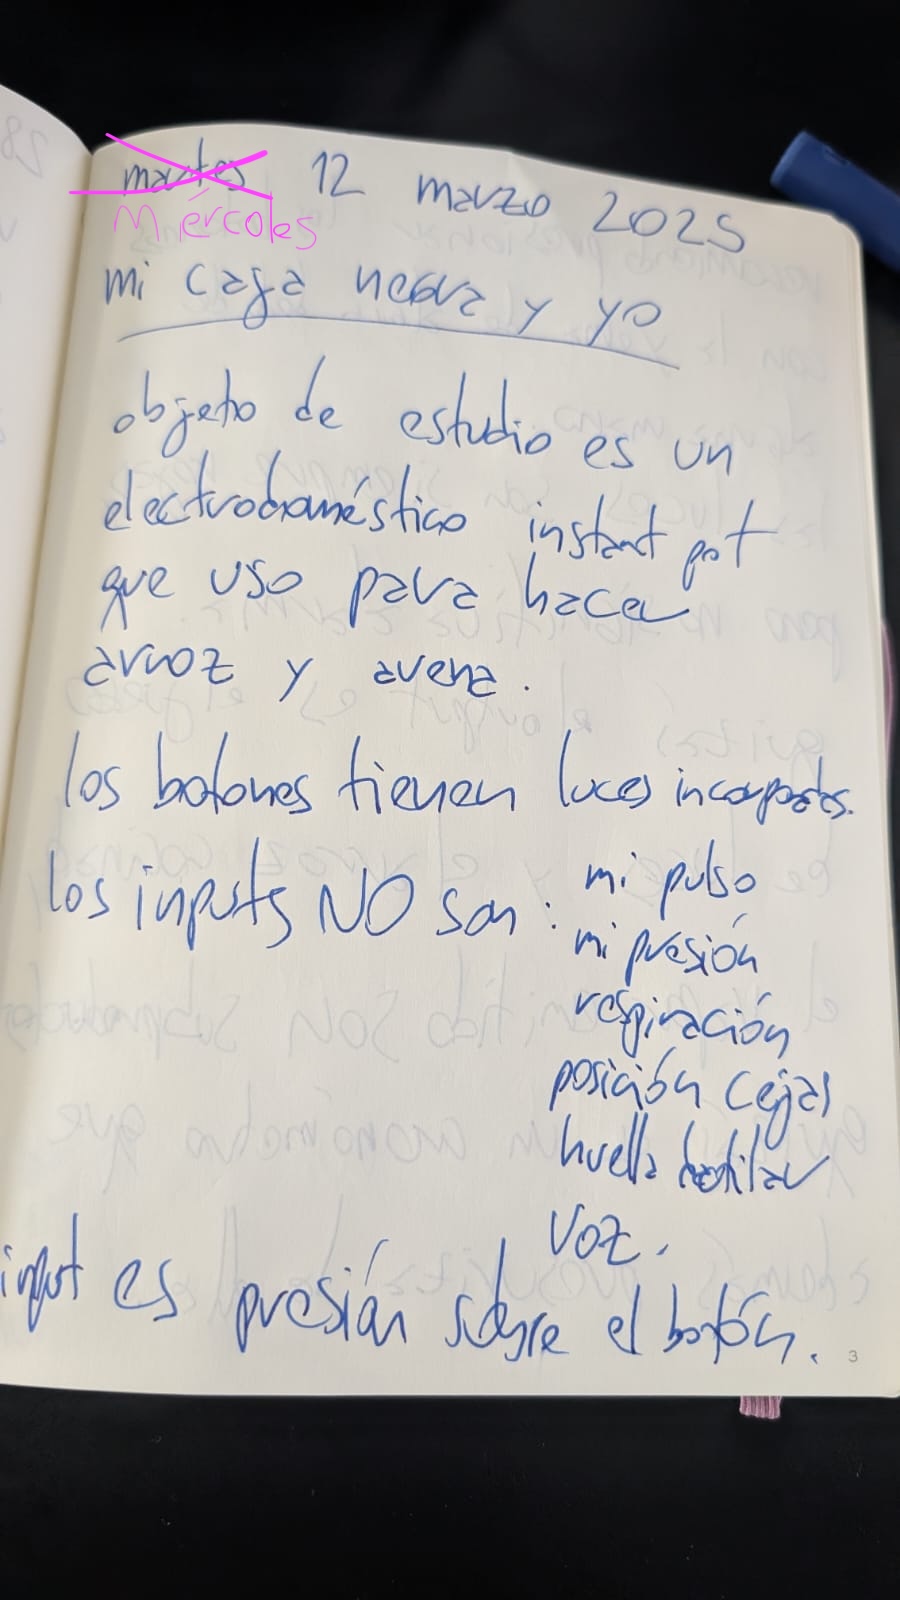 martes 12 marzo 2025
Miércoles
mi caja negra y yo
objeto de estudio es un
electrodoméstico instant pot
que uso para hacer
arroz y avena.
los botones tienen luces incorporadas.
los inputs NO son: mi pulso
mi presión
respiración
posición cejas
huella dactilar
voz.
input es presión sobre el botón.
3